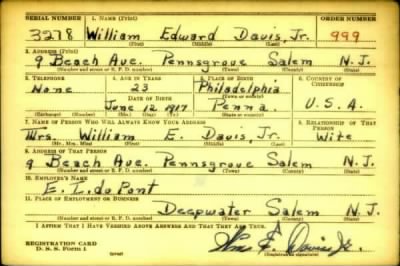 SERIAL NUMBER 1. NAME (Print) ORDER NUMBER
3278 William Edward Davis, Jr. 999
(First) (Middle) (Last)
2. ADDRESS (Print)
9 Beach Ave. Pennsgrove Salem N.J.
(Number and street or R. F. D. number) (Town) (County) (State)
3. TELEPHONE 4. AGE IN YEARS 5. PLACE OF BIRTH 6. COUNTRY OF CITIZENSHIP
None 23 Philadelphia
DATE OF BIRTH (Town or county)
June 12 1917 Penna. U.S.A.
(Exchange) (Number) (Mo.) (Day) (Yr.) (State or country)
7. NAME OF PERSON WHO WILL ALWAYS KNOW YOUR ADDRESS 8. RELATIONSHIP OF THAT PERSON
Mrs. William E. Davis, Jr. Wife
(Mr., Mrs., Miss) (First) (Middle) (Last)
9. ADDRESS OF THAT PERSON
9 Beach Ave. Pennsgrove Salem N.J.
(Number and street or R. F. D. number) (Town) (County) (State)
10. EMPLOYER'S NAME
E. I. du Pont
11. PLACE OF EMPLOYMENT OR BUSINESS
Deepwater Salem N.J.
(Number and street or R. F. D. number) (Town) (County) (State)
I AFFIRM THAT I HAVE VERIFIED ABOVE ANSWERS AND THAT THEY ARE TRUE.
REGISTRATION CARD
D. S. S. Form 1 (over) Wm E. Davis Jr.
(Registrant's signature)